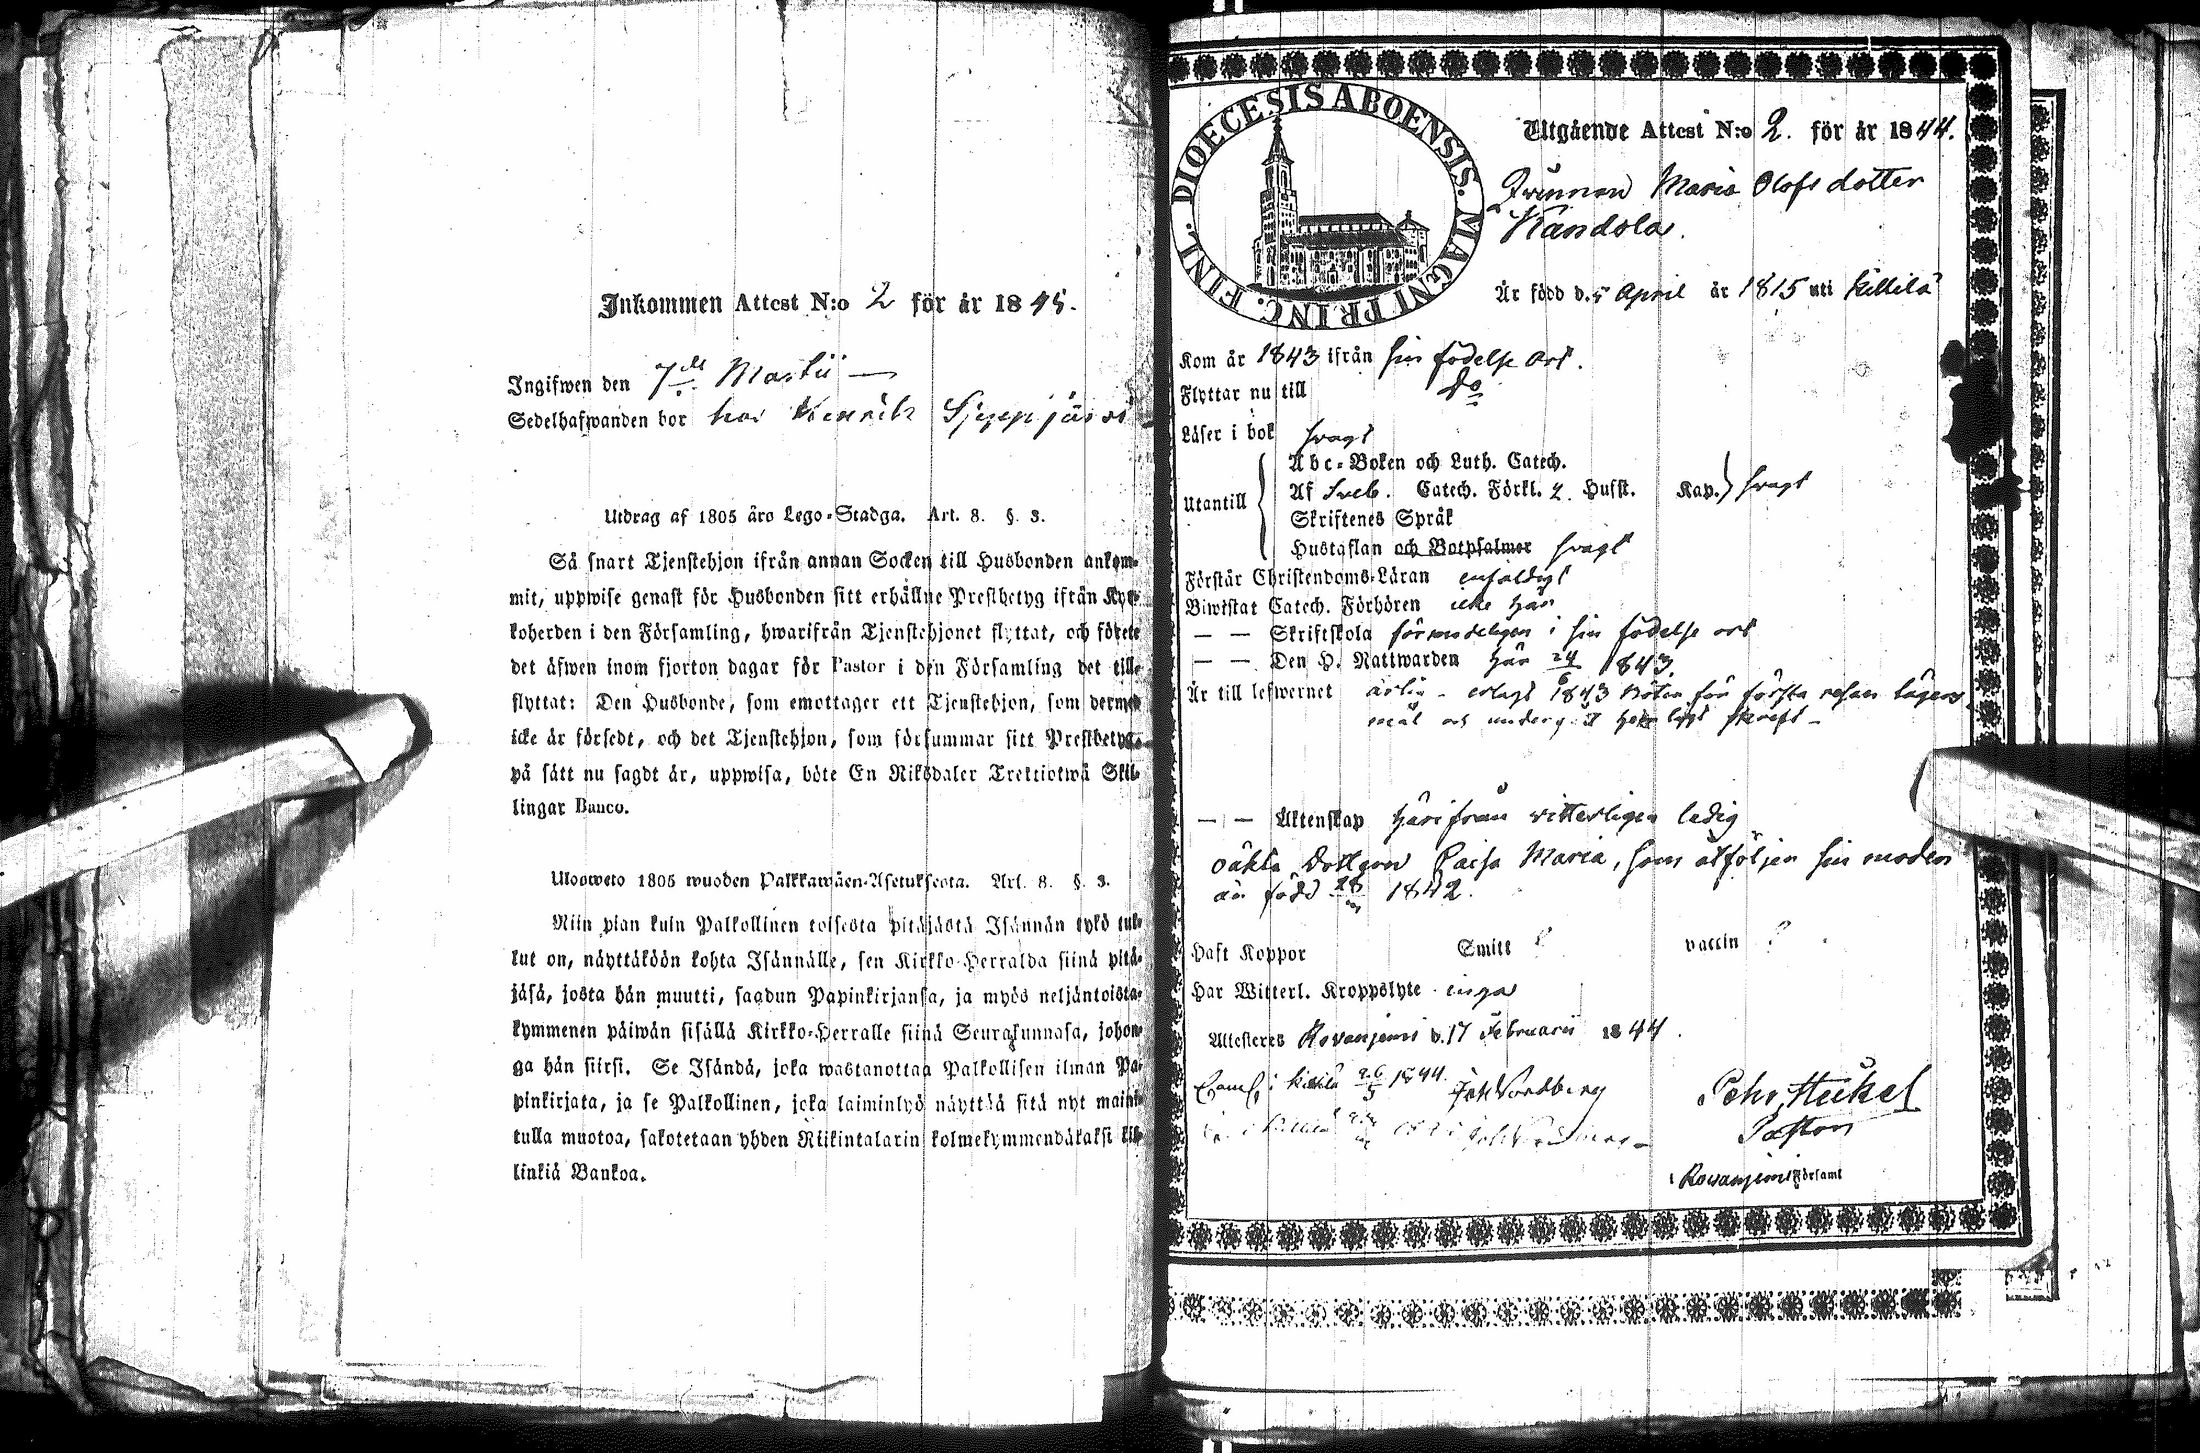 Inkommen Attest N:o 2 för år 1845.
Ingifwen den 7de Martii —
Sedelhafwanden bor hos Henrik
Utdrag af 1805 års Lego-Stadga. Art. 8. §. 3.
Så snart Tjenstehjon ifrån annan Socken till Husbonden ankom-
mit, uppwise genast för Husbonden sitt erhållne Prestbetyg ifrån Kyr-
koherden i den Församling, hwarifrån Tjenstehjonet flyttat, och förete
det äfwen inom fjorton dagar för Pastor i den Församling det till-
flyttat: Den Husbonde, som emottager ett Tjenstehjon, som dermed
icke är försedt, och det Tjenstehjon, som försummar sitt Prestbetyg,
på sätt nu sagdt är, uppwisa, böte En Riksdaler Trettiotwå Skil-
lingar Banco.
Uloswето 1805 wuoden Palkkawäen-Asetuksesta. Art. 8. §. 3.
Niin pian kuin Palkollinen toisesta pitäjästä Isännän tykö tul-
lut on, näyttäköön kohta Isännälle, sen Kirkko-Herralda siinä pitä-
jäsä, josta hän muutti, saadun Papinkirjansa, ja myös neljäntoista-
kymmenen päiwän sisällä Kirkko-Herralle siinä Seurakunnasa, johon-
ga hän siirsi. Se Isändä, joka wastanottaa Palkollisen ilman Pa-
pinkirjata, ja se Palkollinen, joka laiminlyö näyttää sitä nyt maini-
tulla muotoa, sakotetaan yhden Riikintalarin kolmekymmendäkaksi kil-
linkiä Bankoa.
DIOECESIS ABOENSIS. MAGNI PRINC. FINL.
Utgående Attest N:o 2. för år 1844.
Qvinnan Maria Olofsdotter
Kandola.
Är född d. 5 April år 1815 uti Kittilä
Kom år 1843 ifrån sin födelse ort.
Flyttar nu till Do
Läser i bok svagt
Utantill
Abc-Boken och Luth. Catech.
Af Sveb. Catech. Förkl. 2. Husst. Kap. svagt
Skriftenes Språk
Hustaflan och Botpsalmer svagt
Förstår Christendoms-Läran enfaldigt
Biwistat Catech. Förhören icke här
— — Skriftskola förmodeligen i sin födelse ort
— — Den H. Nattwarden här 24/6 1843.
Är till lefwernet ärlig - erlagt 1843 böter för första resan lägers
mål och undergått hemligt skrift -
— — Äktenskap härifrån vitterligen ledig
oäkta dottren Caisa Maria, som åtföljer sin moder
är född 28 1842.
Haft Koppor Smitt ? vaccin ?
Har Witterl. Kroppslyte inga
Attesteras Rovaniemi d. 17 Februarii 1844.
i Kittilä 26/5 1844. Joh Nordberg
Pehr Heikel
Pastor
i Rovaniemi Församl